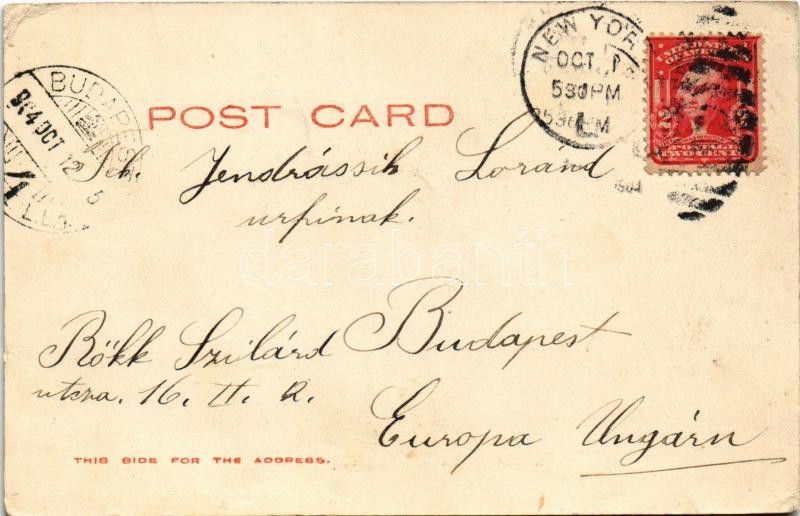 NEW YORK
OCT 1
530PM
1904
UNITED STATES
OF AMERICA
2 2
POSTAGE
TWO CENTS
BUDAPEST
904 OCT 12
POST CARD
Jendrássik Loránd
urfinak.
darabanth
Rökk Szilárd Budapest
utcza. 16. II. a.
Europa Ungárn
THIS SIDE FOR THE ADDRESS.